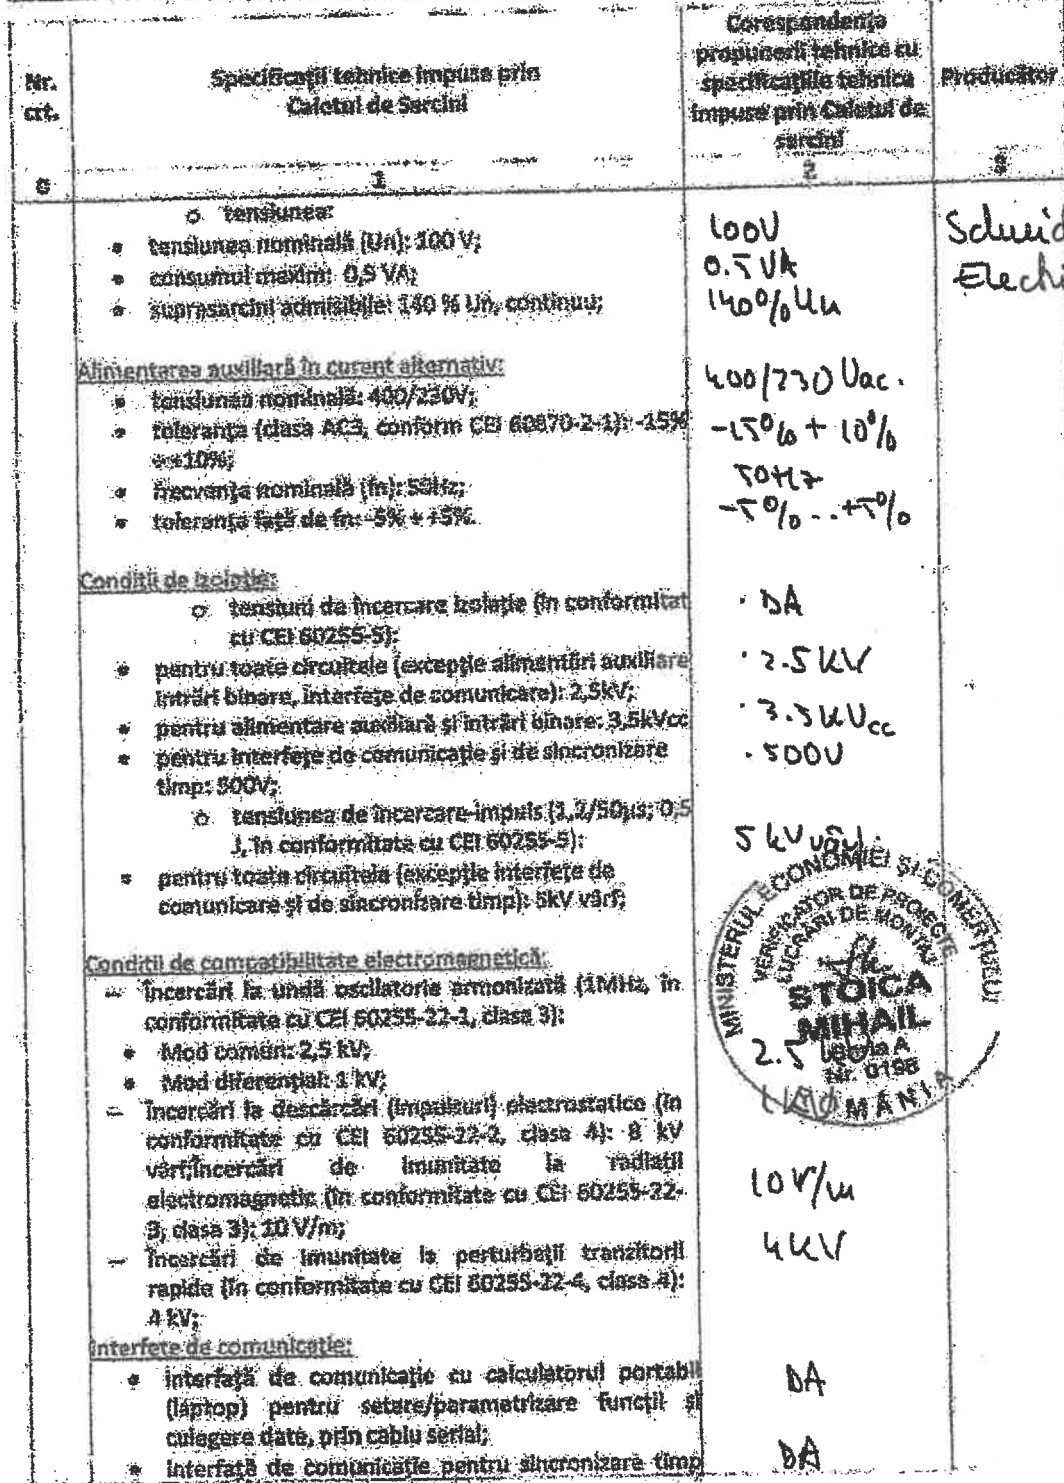 Nr.
crt.
Specificații tehnice impuse prin
Caietul de Sarcini
Corespondența
propunerii tehnice cu
specificațiile tehnice
impuse prin Caietul de
sarcini
Producător
0
1
2
3
o tensiunea:
• tensiunea nominală (Un): 100 V;
100V
• consumul maxim: 0,5 VA;
0.5 VA
• suprasarcini admisibile: 140 % Un, continuu;
140% Un
Alimentarea auxiliară în curent alternativ:
• tensiunea nominală: 400/230V;
400/230 Vac.
• toleranța (clasa AC3, conform CEI 60870-2-1): -15%
÷ +10%;
-15% + 10%
• frecvența nominală (fn): 50Hz;
50Hz
• toleranța față de fn: -5% ÷ +5%.
-5%..+5%
Condiții de izolație:
o tensiuni de încercare izolație (în conformitat
cu CEI 60255-5):
· DA
• pentru toate circuitele (excepție alimentări auxiliare
intrări binare, interfețe de comunicare): 2,5kV;
· 2.5 kV
• pentru alimentare auxiliară și intrări binare: 3,5kVcc
· 3.5 kVcc
• pentru interfețe de comunicație și de sincronizare
timp: 500V;
· 500V
o tensiunea de încercare-impuls (1,2/50µs; 0,5
J, în conformitate cu CEI 60255-5):
• pentru toate circuitele (excepție interfețe de
comunicare și de sincronizare timp): 5kV vârf;
5 kV vârf.
MINISTERUL ECONOMIEI ȘI COMERȚULUI
VERIFICATOR DE PROIECTE
LUCRĂRI DE MONTAJ
STOICA
MIHAIL
Nr. 0196
Condiții de compatibilitate electromagnetică:
– încercări la undă oscilatorie armonizată (1MHz, în
conformitate cu CEI 60255-22-1, clasa 3):
• Mod comun: 2,5 kV;
2.5
• Mod diferențial: 1 kV;
– încercări la descărcări (impulsuri) electrostatice (în
conformitate cu CEI 60255-22-2, clasa 4): 8 kV
vârf;încercări de imunitate la radiații
electromagnetic (în conformitate cu CEI 60255-22-
3, clasa 3): 10 V/m;
10 V/m
– încercări de imunitate la perturbații tranzitorii
rapide (în conformitate cu CEI 60255-22-4, clasa 4):
4 kV;
4 kV
Interfețe de comunicație:
• interfață de comunicație cu calculatorul portabil
(laptop) pentru setare/parametrizare funcții și
culegere date, prin cablu serial;
DA
• interfață de comunicație pentru sincronizare timp
DA